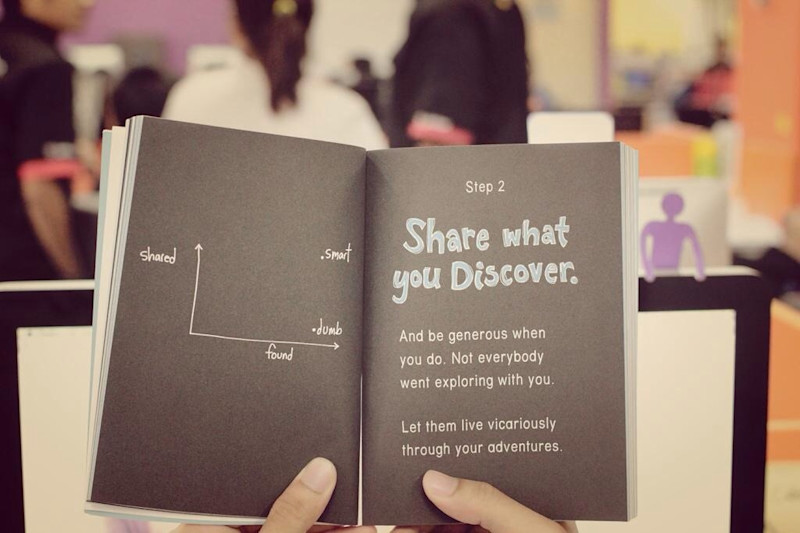 shared
.smart
.dumb
found
Step 2
Share what
you Discover.
And be generous when
you do. Not everybody
went exploring with you.
Let them live vicariously
through your adventures.